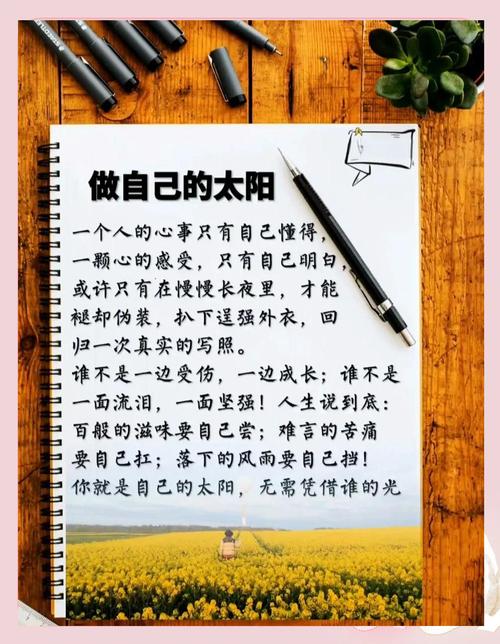 做自己的太阳
一个人的心事只有自己懂得，
一颗心的感受，只有自己明白，
或许只有在慢慢长夜里，才能
褪却伪装，扒下逞强外衣，回
归一次真实的写照。
谁不是一边受伤，一边成长；谁不是
一面流泪，一面坚强！人生说到底：
百般的滋味要自己尝；难言的苦痛
要自己扛；落下的风雨要自己挡！
你就是自己的太阳，无需凭借谁的光